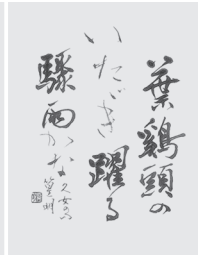 葉鶏頭の
いたゞき躍る
驟雨かな
久女の句